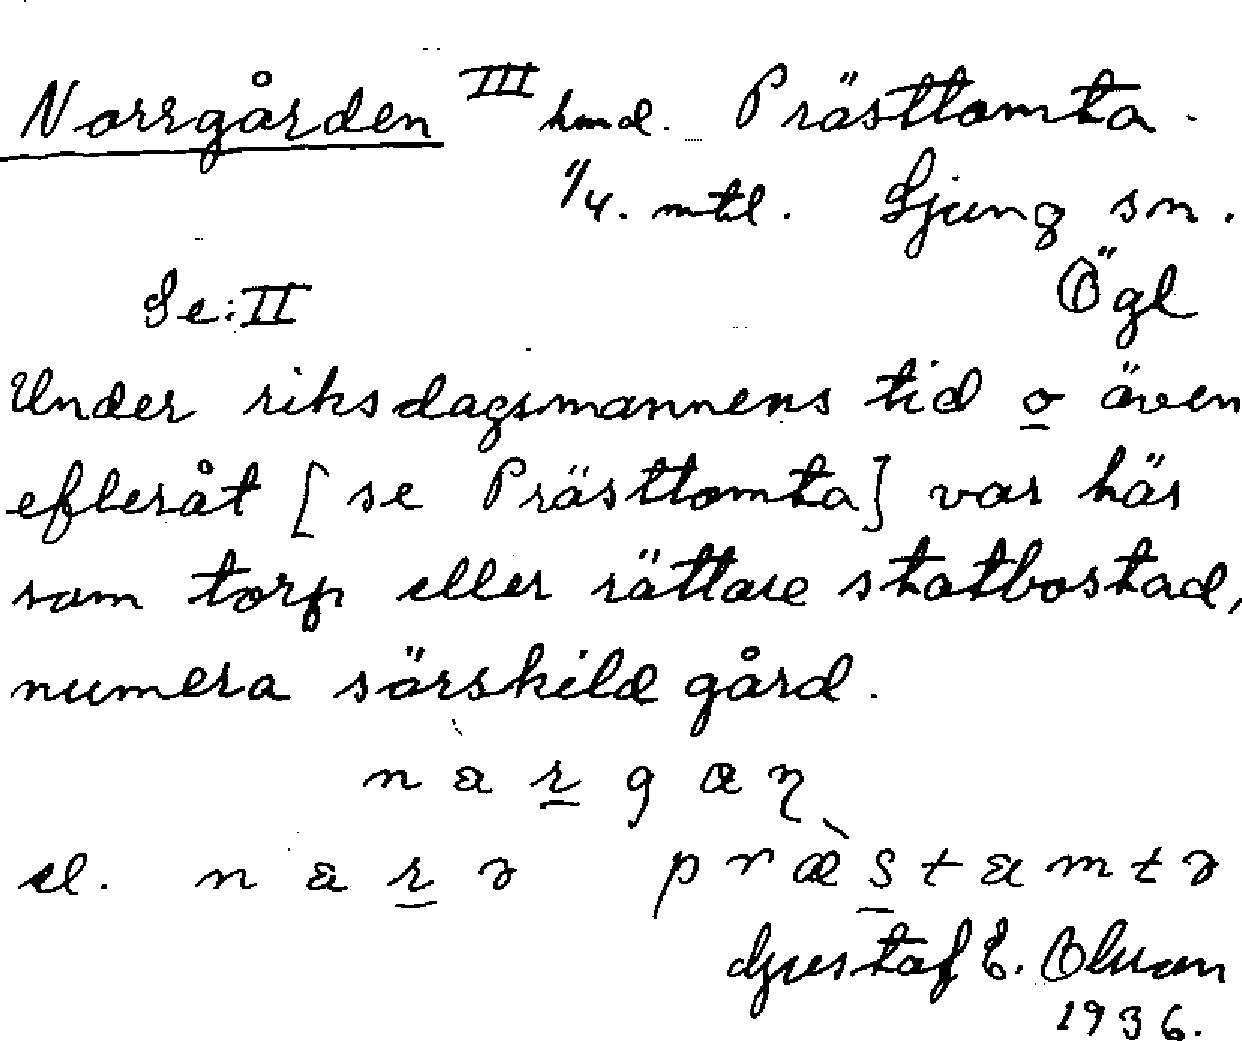 Norrgården III hmd. Prästtomta.
1/4. mtl. Ljung sn.
Se: II Ögl
Under riksdagsmannens tid o även
efteråt [se Prästtomta] var här
som torp eller rättare statbostad,
numera särskild gård.
el.
Gustaf E. Olsson
1936.